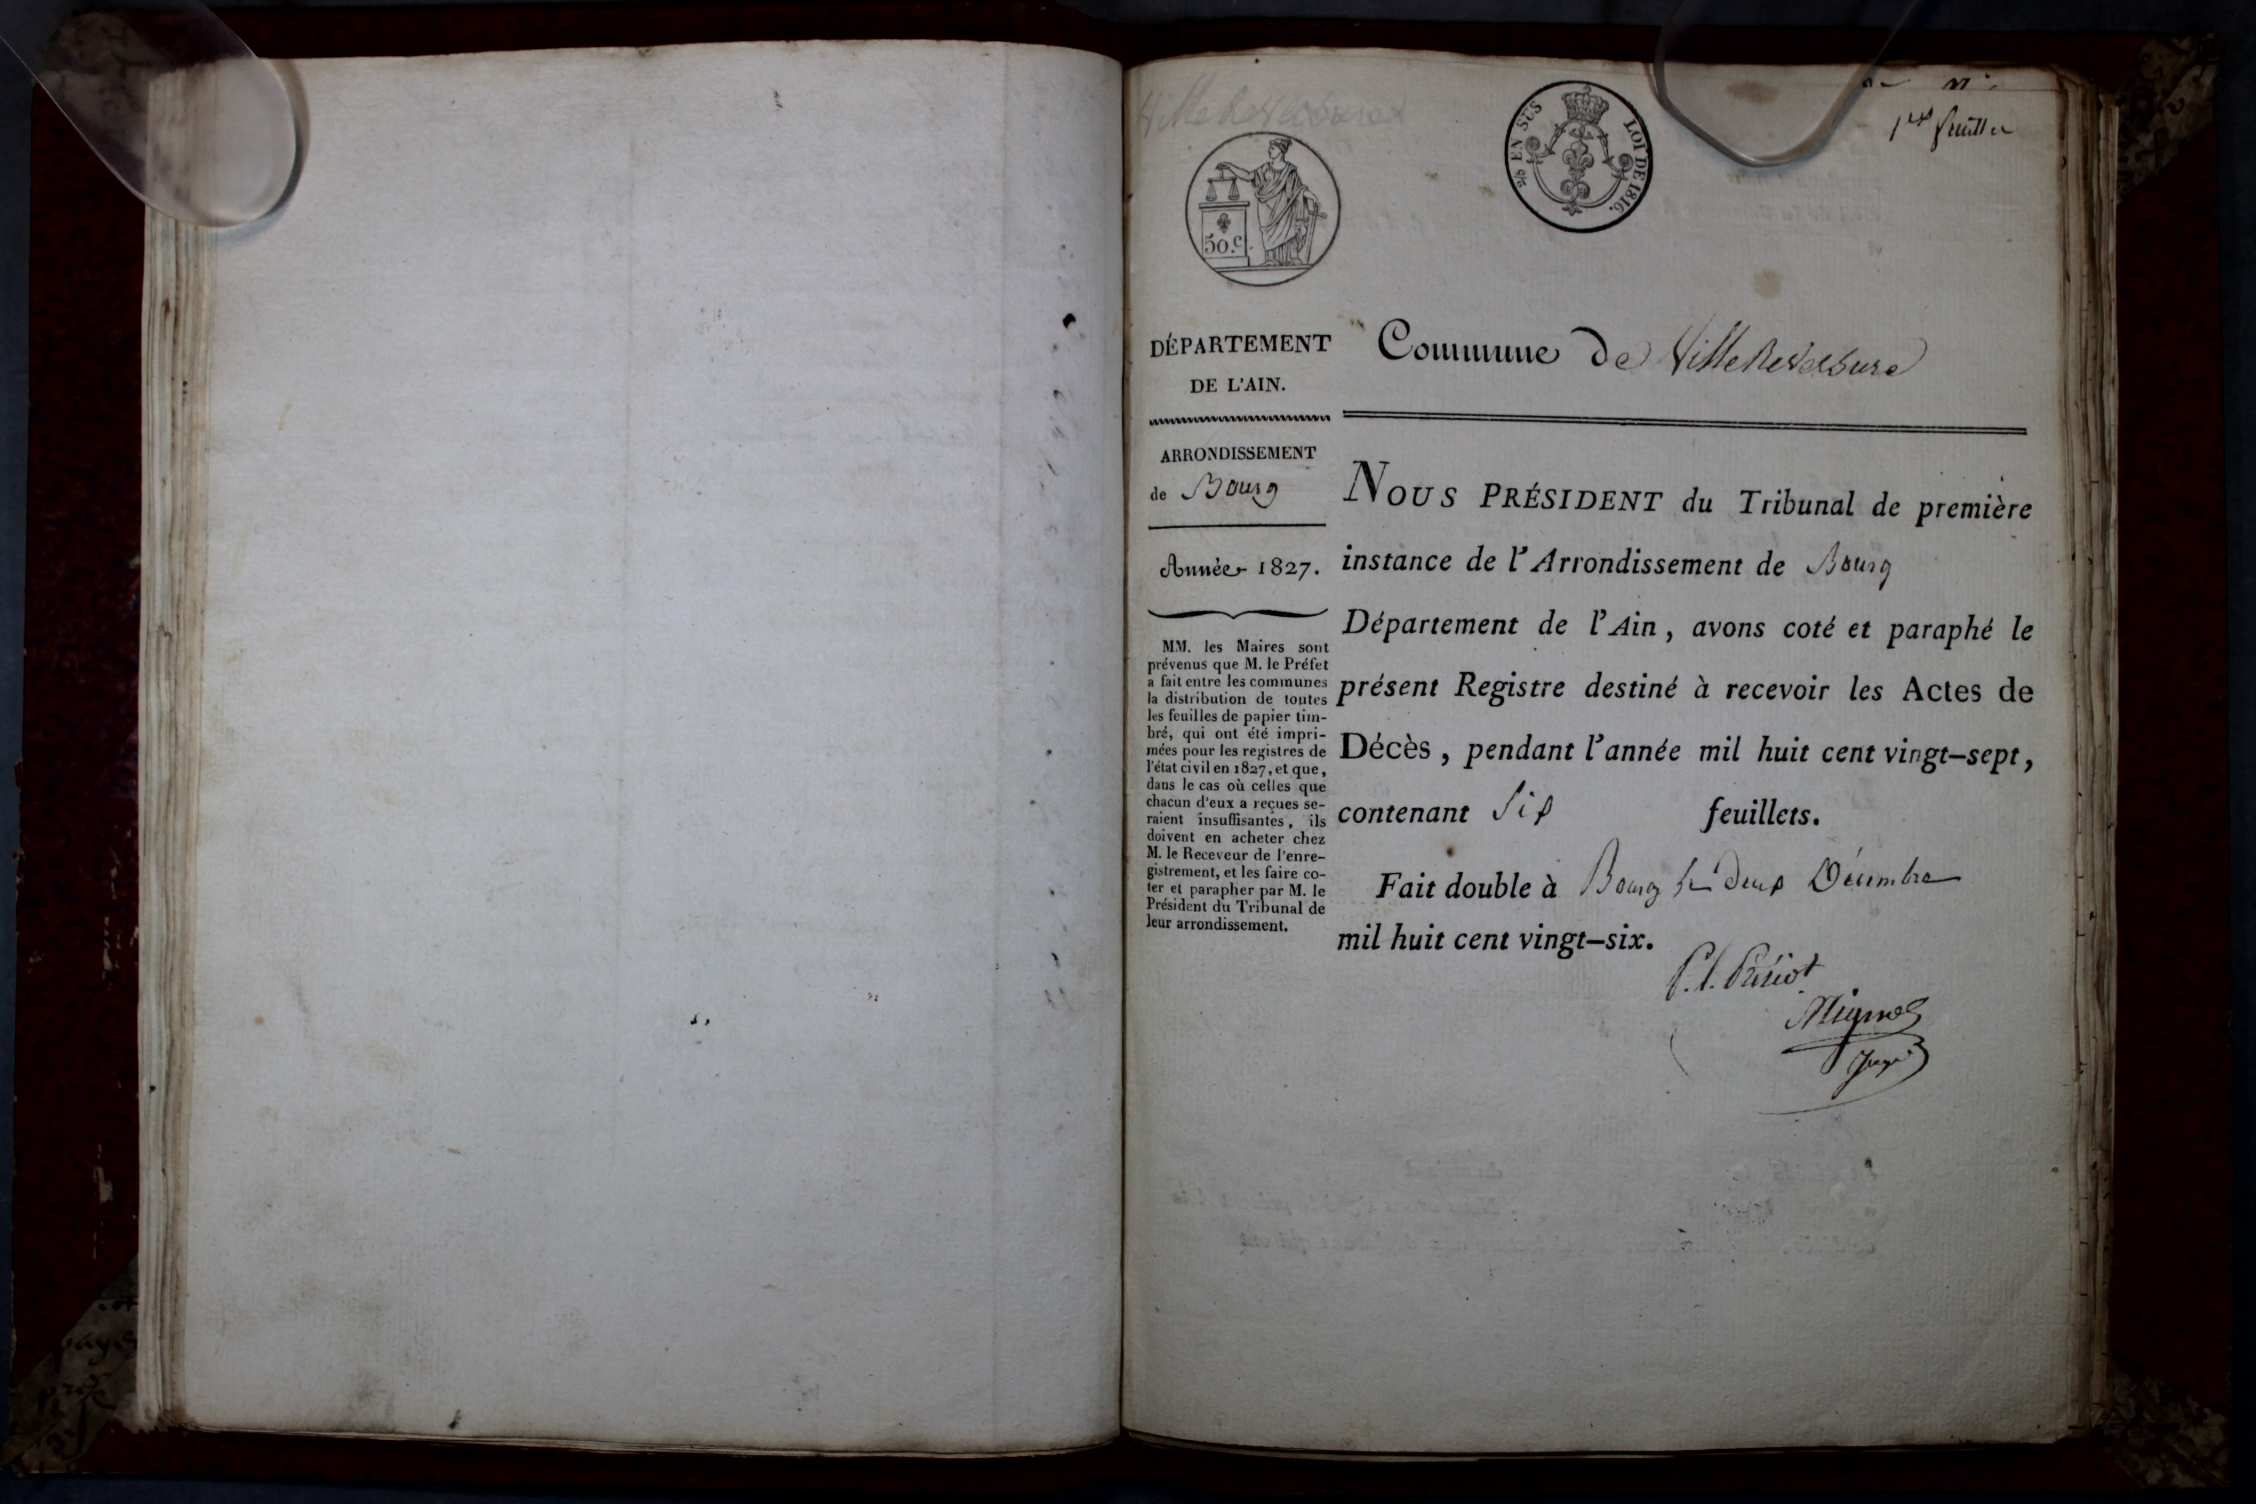 1er feuillet
2/5 EN SUS LOI DE 1816.
50.C.
DÉPARTEMENT
DE L'AIN.
ARRONDISSEMENT
de Bourg
Année 1827.
MM. les Maires sont
prévenus que M. le Préfet
a fait entre les communes
la distribution de toutes
les feuilles de papier tim-
bré, qui ont été impri-
mées pour les registres de
l'état civil en 1827, et que,
dans le cas où celles que
chacun d'eux a reçues se-
raient insuffisantes, ils
doivent en acheter chez
M. le Receveur de l'enre-
gistrement, et les faire co-
ter et parapher par M. le
Président du Tribunal de
leur arrondissement.
Commune de Villereversure
NOUS PRÉSIDENT du Tribunal de première
instance de l'Arrondissement de Bourg
Département de l'Ain, avons coté et paraphé le
présent Registre destiné à recevoir les Actes de
Décès, pendant l'année mil huit cent vingt-sept,
contenant Six feuillets.
Fait double à Bourg le deux Décembre
mil huit cent vingt-six.
Juge